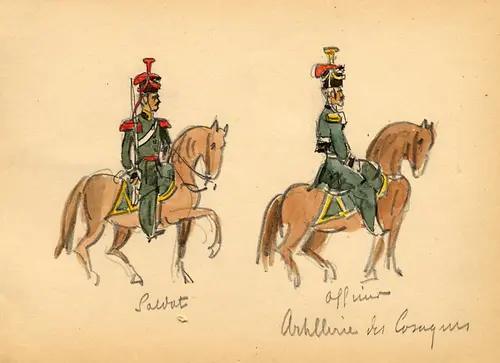 Soldat
Officier
Artillerie des Cosaques